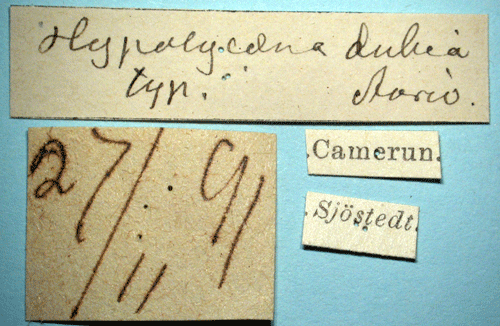 Hypolycæna dubia
typ. Auriv.
27/11 91
Camerun.
Sjöstedt.